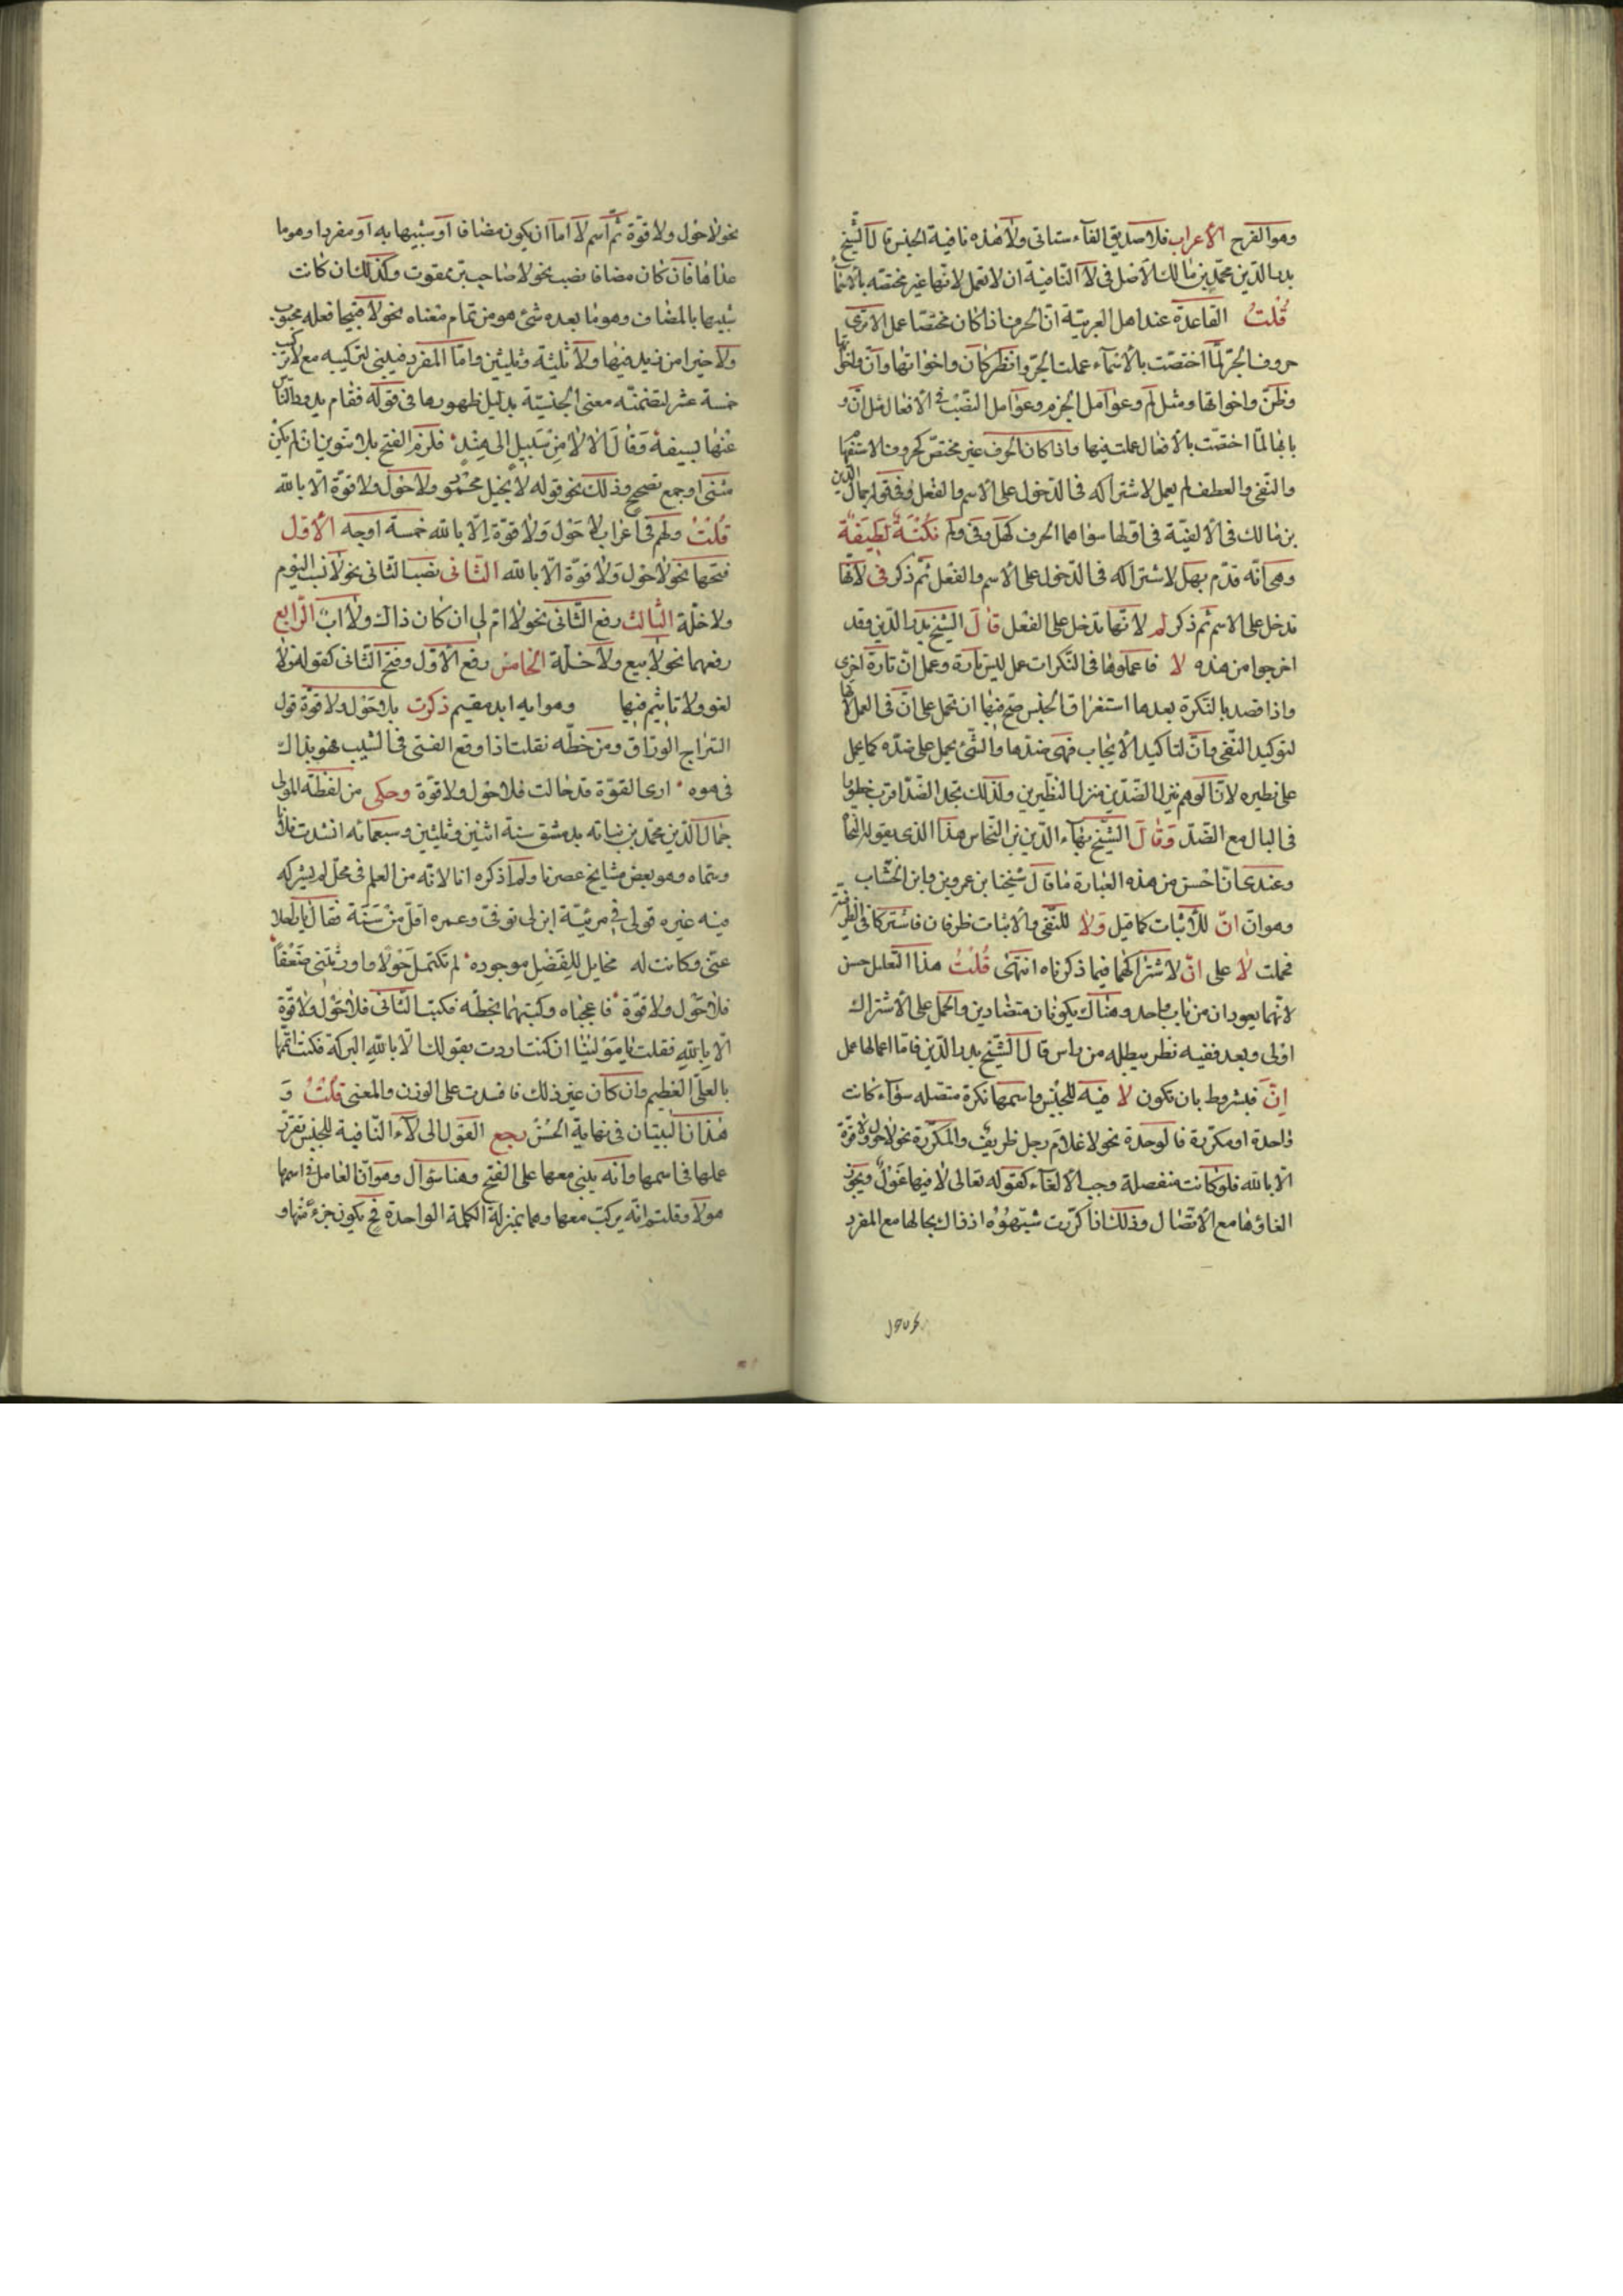 وهو الفرح الاعراب فلا صديق الفاء ستاتى ولا هذه نافية الجنس قال الشيخ
بدر الدين محمد بن مالك الاصل فى لا النافية ان لا تعمل لانها غير مختصه بالاسماء
قلت القاعدة عند اهل العربية ان الحرف اذا كان مختصا عمل الا ترى
حروف الجر لما اختصت بالاسماء عملت الجر وانظر كان واخواتها وان واخواتها
وظن واخواتها ومثل لم وعوامل الجزم وعوامل النصب فى الافعال مثل ان و
بابها لما اختصت بالافعال عملت فيها واذا كان الحرف غير مختص كحروف الاستفهام
والنفى والعطف لم يعمل لاشتراكه فى الدخول على الاسم والفعل وفى قول جمال الدين
بن مالك فى الالفية فى اولها سواهما الحرف كهل وفى ولم نكتة لطيفة
وهى انه قدم بهل لاشتراكه فى الدخول على الاسم والفعل ثم ذكر فى لانها
تدخل على الاسم ثم ذكر لم لانها تدخل على الفعل قال الشيخ بدر الدين وقد
اخرجوا من هذه لا فاعملوها فى النكرات عمل ليس تارة وعمل ان تارة اخرى
واذا قصد بالنكرة بعدها استغراق الجنس صح فيها ان تحمل على ان فى العمل لانها
لتوكيد النفى وان لتاكيد الايجاب فهى ضدها والشئ يحمل على ضده كما يحمل
على نظيره لان الوهم ينزل الضدين منزل النظيرين ولذلك تجد الضد اقرب خطورا
فى البال مع الضد وقال الشيخ بهاء الدين بن النحاس هذا الذى يقوله النحاة
وعندى ان احسن من هذه العبارة ما قال شيخنا ابن عمرون وابن الخشاب
وهو ان ان للاثبات كما قيل ولا للنفى والاثبات ظرفان فاشتركا فى الطرفية
فحملت لا على ان لاشتراكهما فيما ذكرناه انتهى قلت هذا التعليل حسن
لانهما يعودان من باب واحد وهناك يكونان متضادين والحمل على الاشتراك
اولى وبعد ففيه نظر يبطله من راس قال الشيخ بدر الدين فاما اعمالها عمل
ان فمشروط بان تكون لا فيه للجنس واسمها نكرة متصله سواء كانت
واحدة او مكررة فالوحدة نحو لا غلام رجل ظريف والمكررة نحو لا حول ولا قوة
الا بالله فلو كانت منفصلة وجب الالغاء كقوله تعالى لا فيها غول ويجوز
الغاؤها مع الاتصال وذلك اذا كررت شبهوه اذ ذاك بحالها مع المفرد
نحو لا حول ولا قوة ثم اسم لا اما ان يكون مضافا او شبيها به او مفردا وهو ما
عداها فان كان مضافا نصب نحو لا صاحب بر ممقوت وكذلك ان كانت
شبيها بالمضاف وهو ما بعده شئ هو من تمام معناه نحو لا قبيحا فعله محبوب
ولا خيرا من زيد فيها ولا ثلثة وثلثين واما المفرد فيبنى لتركيبه مع لا تركيب
خمسة عشر لتضمنه معنى الجنسية بدليل ظهورها فى قوله فقام يذود الناس
عنها بسيفه وقال الا لا من سبيل الى هند فلزم الفتح بلا تنوين ان لم يكن
مثنى او جمع تصحيح وذلك نحو قوله لا بخيل محمود ولا حول ولا قوة الا بالله
قلت ولهم فى اعراب لا حول ولا قوة الا بالله خمسة اوجه الاول
فتحهما نحو لا حول ولا قوة الا بالله الثانى نصب الثانى نحو لا نسب اليوم
ولا خلة الثالث رفع الثانى نحو لا ام لى ان كان ذاك ولا اب الرابع
رفعهما نحو لا بيع ولا خلة الخامس رفع الاول وفتح الثانى كقوله فلا
لغو ولا تاثيم فيها وما به ابد مقيم ذكرت بلا حول ولا قوة قول
السراج الوراق ومن خطه نقلت اذا وقع الفتى فى الشيب فهو بذاك
فى هوه ارى القوة قد خالت فلا حول ولا قوة وحكى من لفظه المولى
جمال الدين محمد بن نباته بدمشق سنة اثنين وثلثين وسبعمائه انشدت فلانا
وسماه وهو بعض مشايخ عصرنا ولم اذكره انا لانه من العلم فى محل لم يشركه
فيه غيره قولى فى مرثية ابن لى توفى وعمره اقل من سنة فقال يا راحلا
عنى وكانت له مخايل للفضل موجوده لم تكتمل حولا واورثتنى ضعفا
فلا حول ولا قوة فاعجباه وكتبهما بخطه فكتب الثانى فلا حول ولا قوة
الا بالله فقلت يا مولينا ان كنت اردت بقولك الا بالله البركة فكنت اتمها
بالعلى العظيم وان كان غير ذلك فافسدت على الوزن والمعنى قلت و
هذان البيتان فى نهاية الحسن رجع القول الى لاء النافية للجنس تقرر
عملها فى اسمها وانه يبنى معها على الفتح وهنا سؤال وهو ان العامل فى اسمها
هو لا وقلتم انه يركب معها وهما بمنزلة الكلمة الواحدة فح يكون جزء منها و